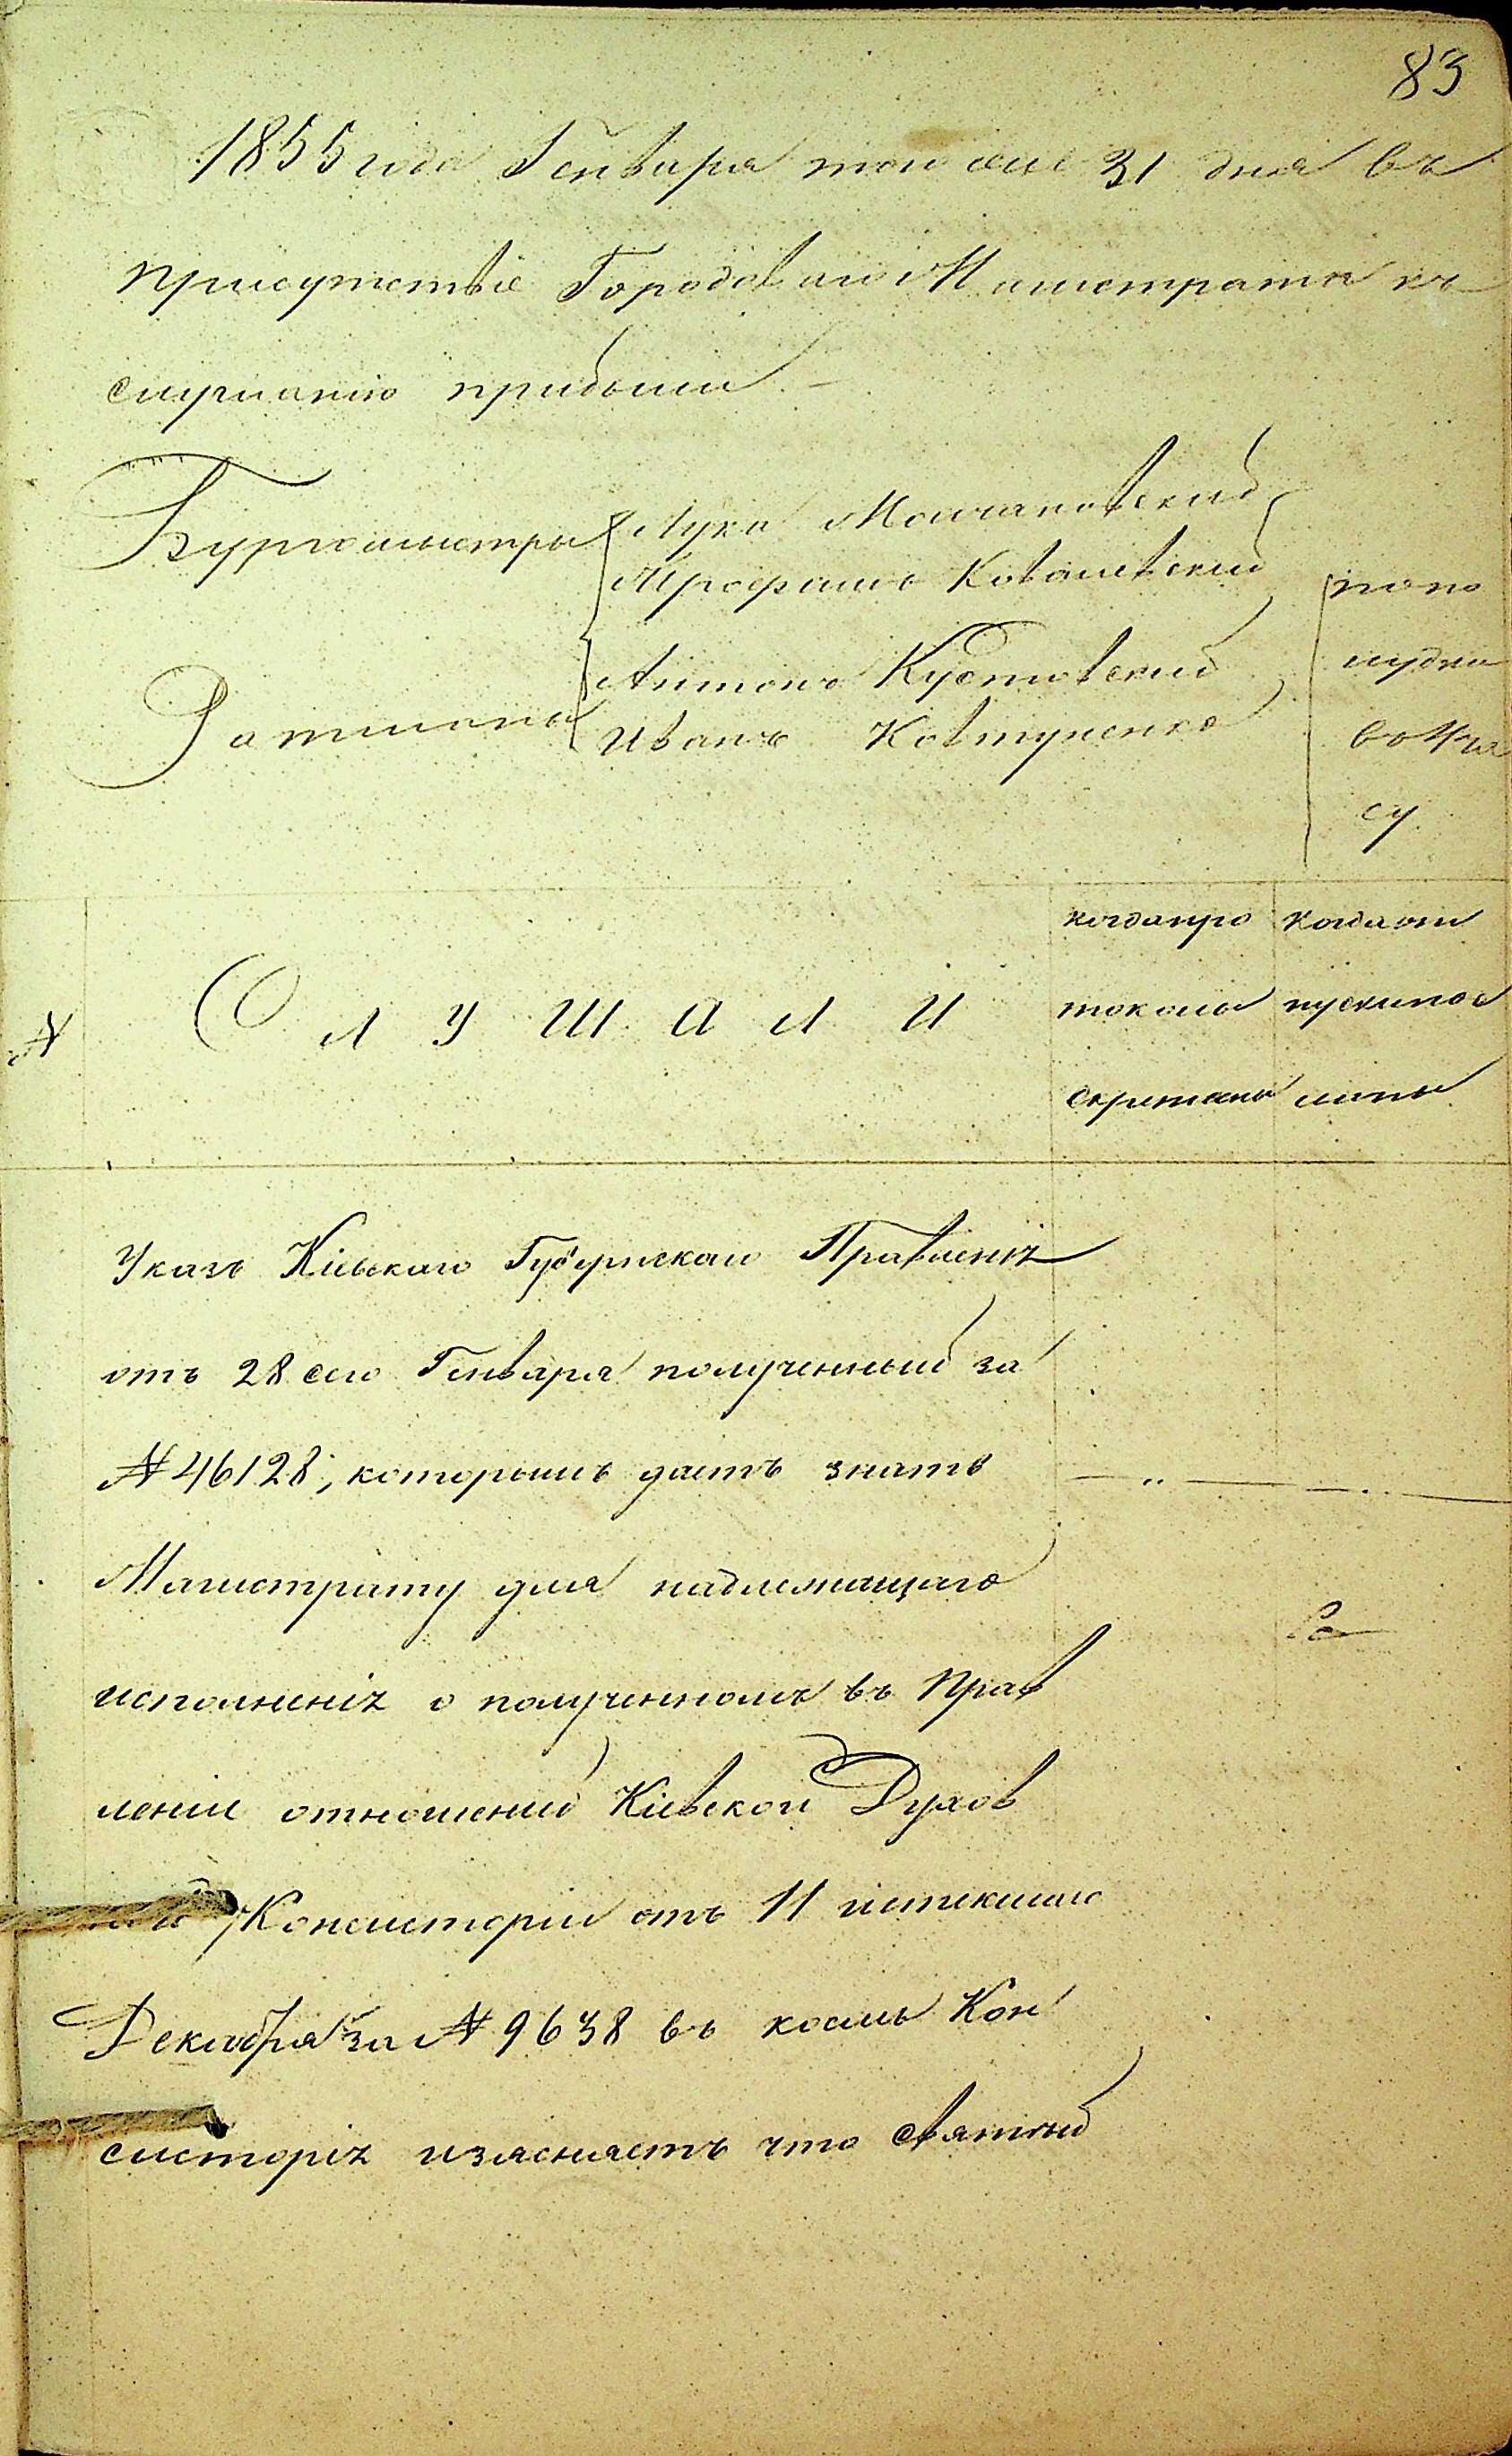 83
1855 года Генваря мѣсяца 31 дня въ
присутствіе Городоваго Магистрата къ
слушанію прибыли
Бургомистры Лука Молчановскій
Митрофанъ Ковалевскій
Ратманы Антонъ Кустовскій
Иванъ Ковтуненко
попо
лудни
въ
су
№
СЛУШАЛИ
когда про
токолъ
скрепленъ
когда от
пускъ пос
ланъ
Указъ Кіевскаго Губернскаго Правленія
отъ 28 сего Генваря полученный за
№ 46128, которымъ даетъ знать
Магистрату для надлежащаго
исполненія о полученномъ въ Прав
леніи отношеній Кіевской Духов
ной Консисторіи отъ 11 истекшаго
Декабря за № 9638 въ коемъ Кон
систорія изясняетъ что святый